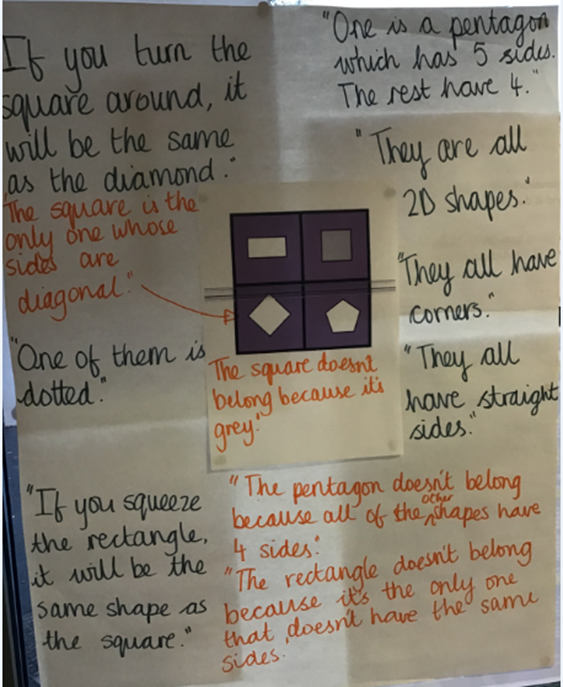 If you turn the
square around, it
will be the same
as the diamond."
The square is the
only one whose
sides are
diagonal."
"One of them is
dotted."
"If you squeeze
the rectangle,
it will be the
same shape as
the square."
The square doesn't
belong because it's
grey."
"One is a pentagon
which has 5 sides.
The rest have 4."
"They are all
2D shapes."
"They all have
corners."
"They all
have straight
sides."
"The pentagon doesn't belong
because all of the other shapes have
4 sides."
"The rectangle doesn't belong
because it's the only one
that doesn't have the same
sides.